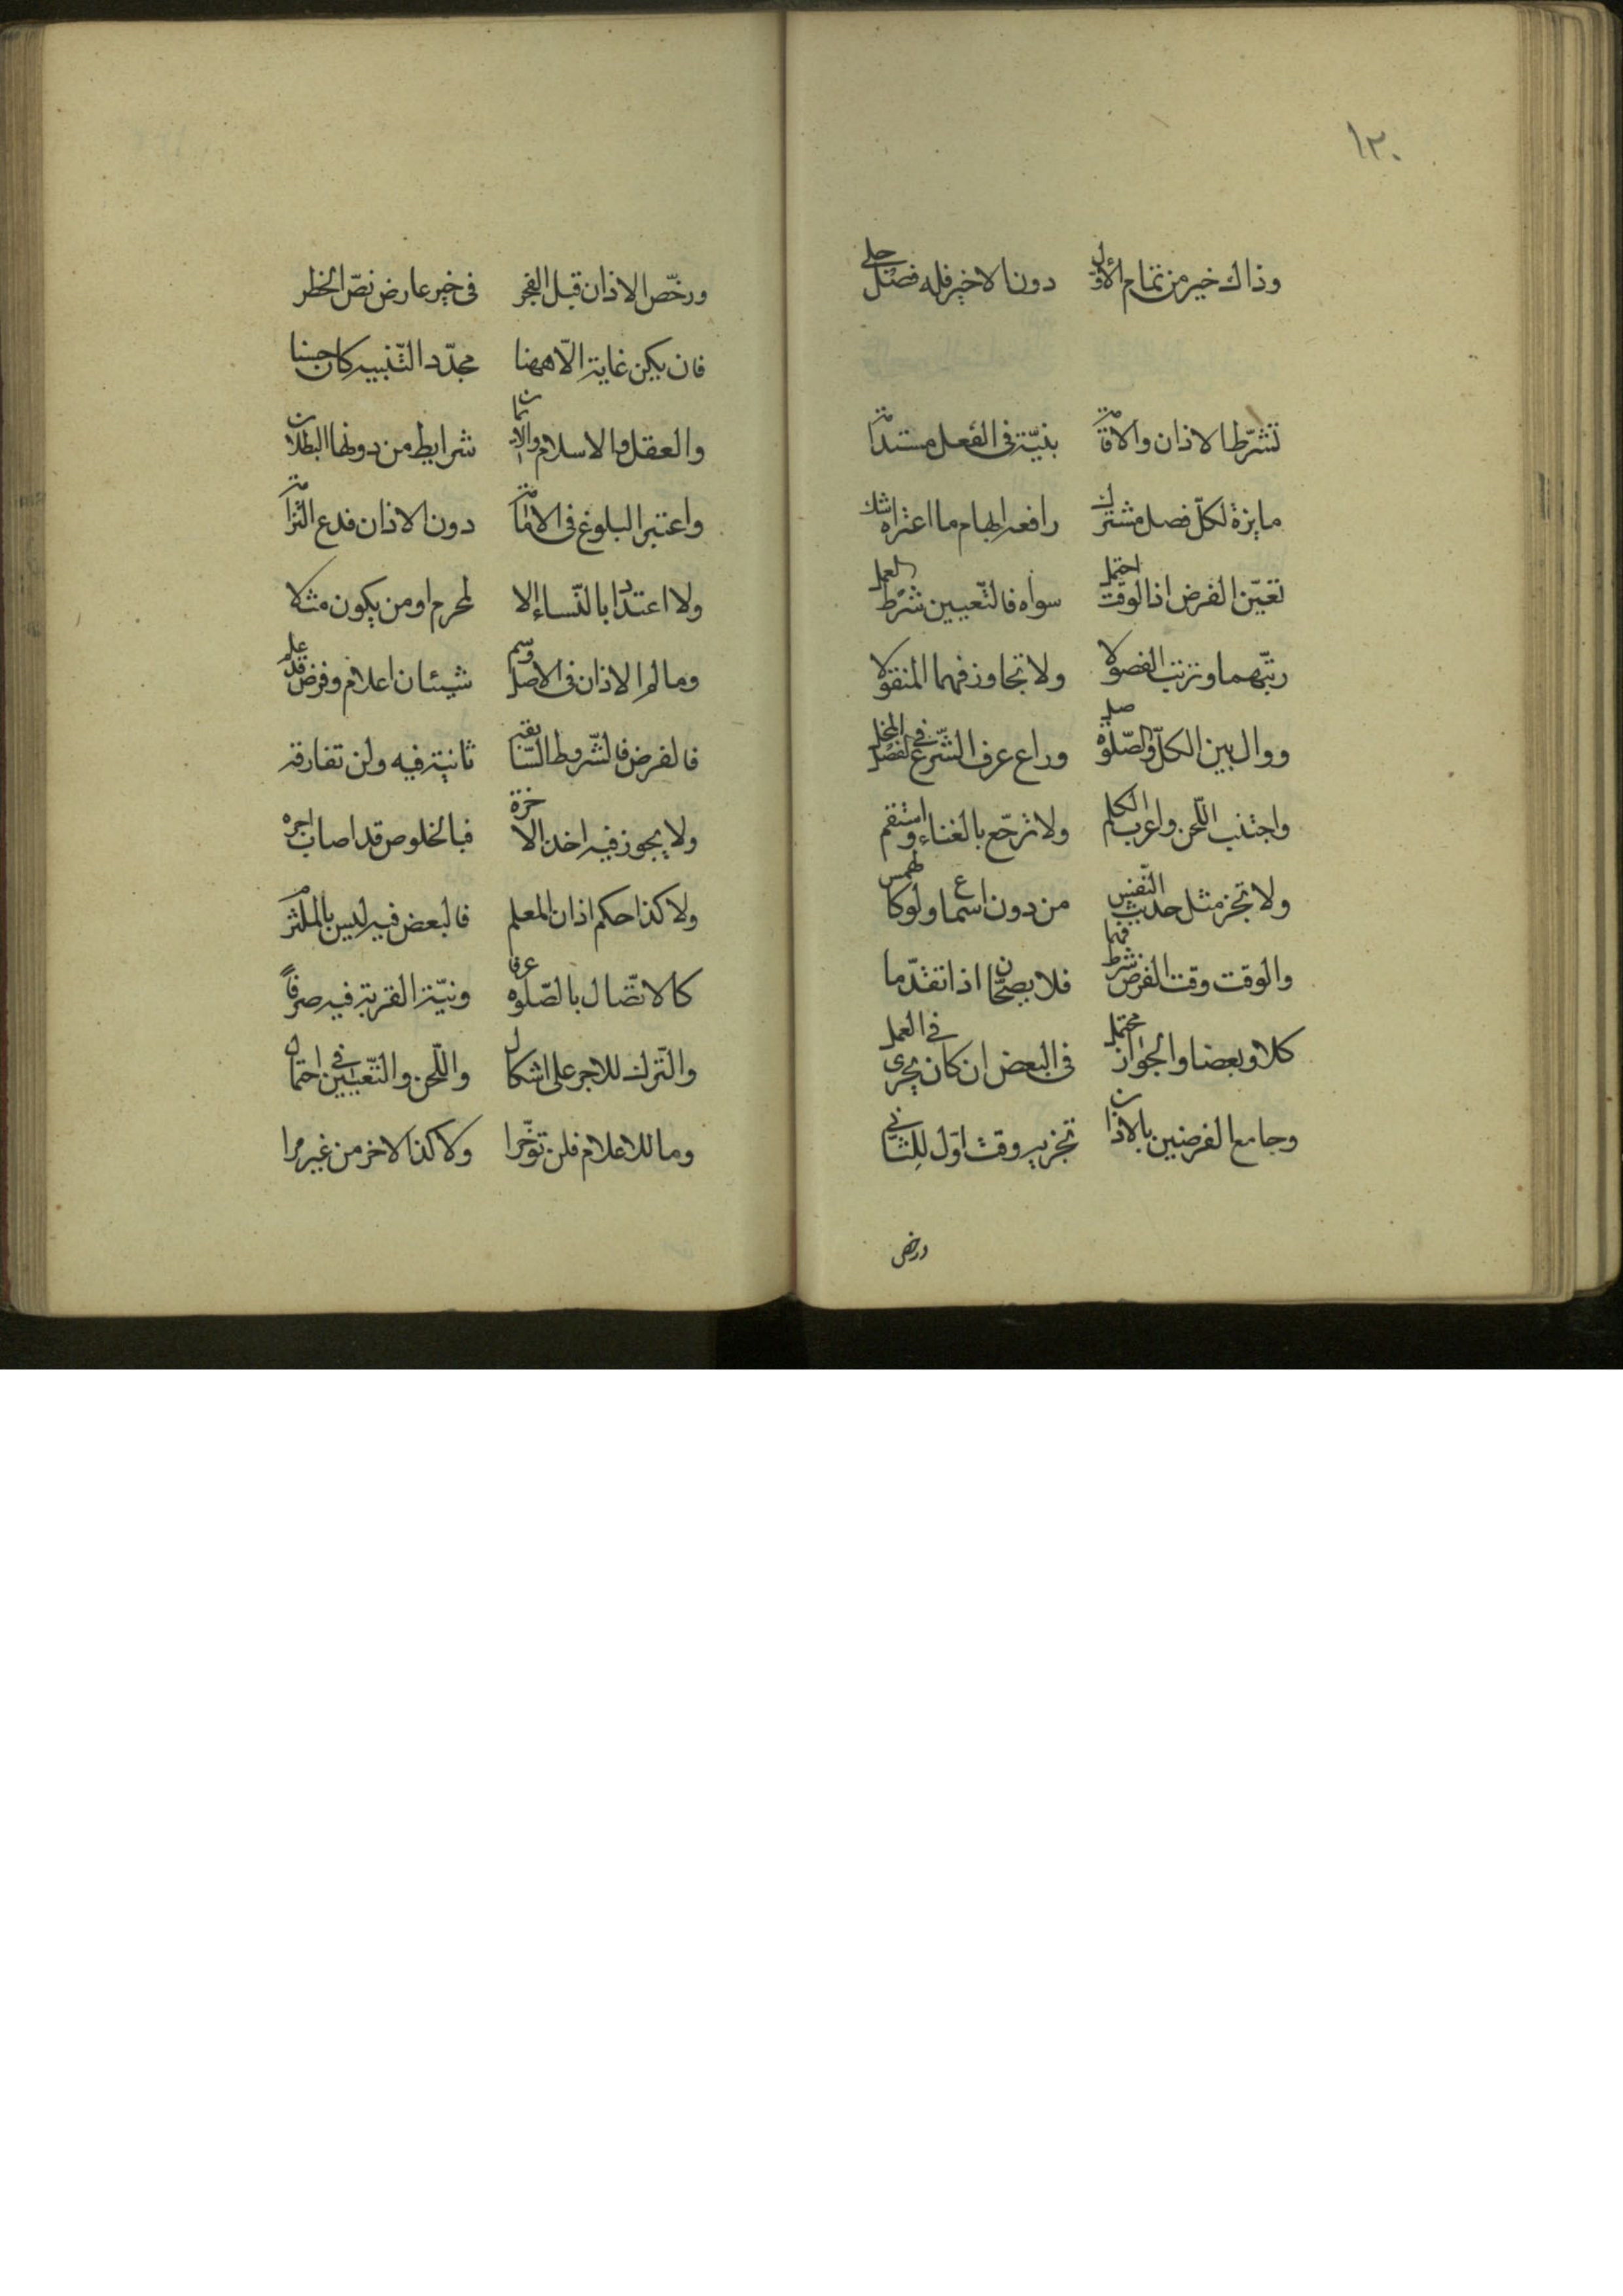 ١٣٠
وذاك خير من تمام الأول دون الاخير فله فضل جلي
تشرط الاذان والاقامة بنية في الفعل مستدامة
مايزة لكل فصل مشترك رافعة ابهام ما اعتراه شك
تعين الفرض اذا الوقت احتمل سواه فالتعيين شرط للعمل
رتبهما وترتب الفصولا ولا تجاوز فيهما المنقولا
ووال بين الكل والصلوة صل وراع عرف الشرع في الفصل المخل
واجتنب اللحن واعرب الكلم ولا ترجع بالغناء واستقم
ولا تجز مثل حديث النفس من دون اسماع ولو كالهمس
والوقت وقت الفرض شرط فيهما فلا يصحان اذا تقدما
كلا وبعضا والجواز محتمل في البعض ان كان يجرى في العمل
وجامع الفرضين بالاذان تجزيه وقت اول للثاني
ورخص
ورخص الاذان قبل الفجر في خبر عارض نص الحظر
فان يكن غاية الا ههنا مجدد التنبيه كان حسنا
والعقل والاسلام والايمان شرايط من دونها البطلان
واعتبر البلوغ في الاقامة دون الاذان فدع الثرامة
ولا اعتداد بالنساء الا لمحرم او من يكون مثلا
وما له الاذان في الاصل وسم شيئان اعلام وفرض قد علم
فالفرض فالشروط السابقة ثانية فيه ولن تفارقه
ولا يجوز فيه اخذ الاخرة فبالخلوص قد اصاب اجره
ولا كذا حكم اذان المعلم فالبعض فيه ليس بالملتزم
كالاتصال بالصلوة عرفا ونية القربة فيه صرفا
والترك للاجر على اشكال واللحن والتعيين في احتمال
وما للاعلام فلن توخرا ولا كذا الاخر من غير مرا